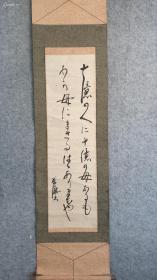 十億の人に十億の母あるも
わが母にまさる母ありなむや